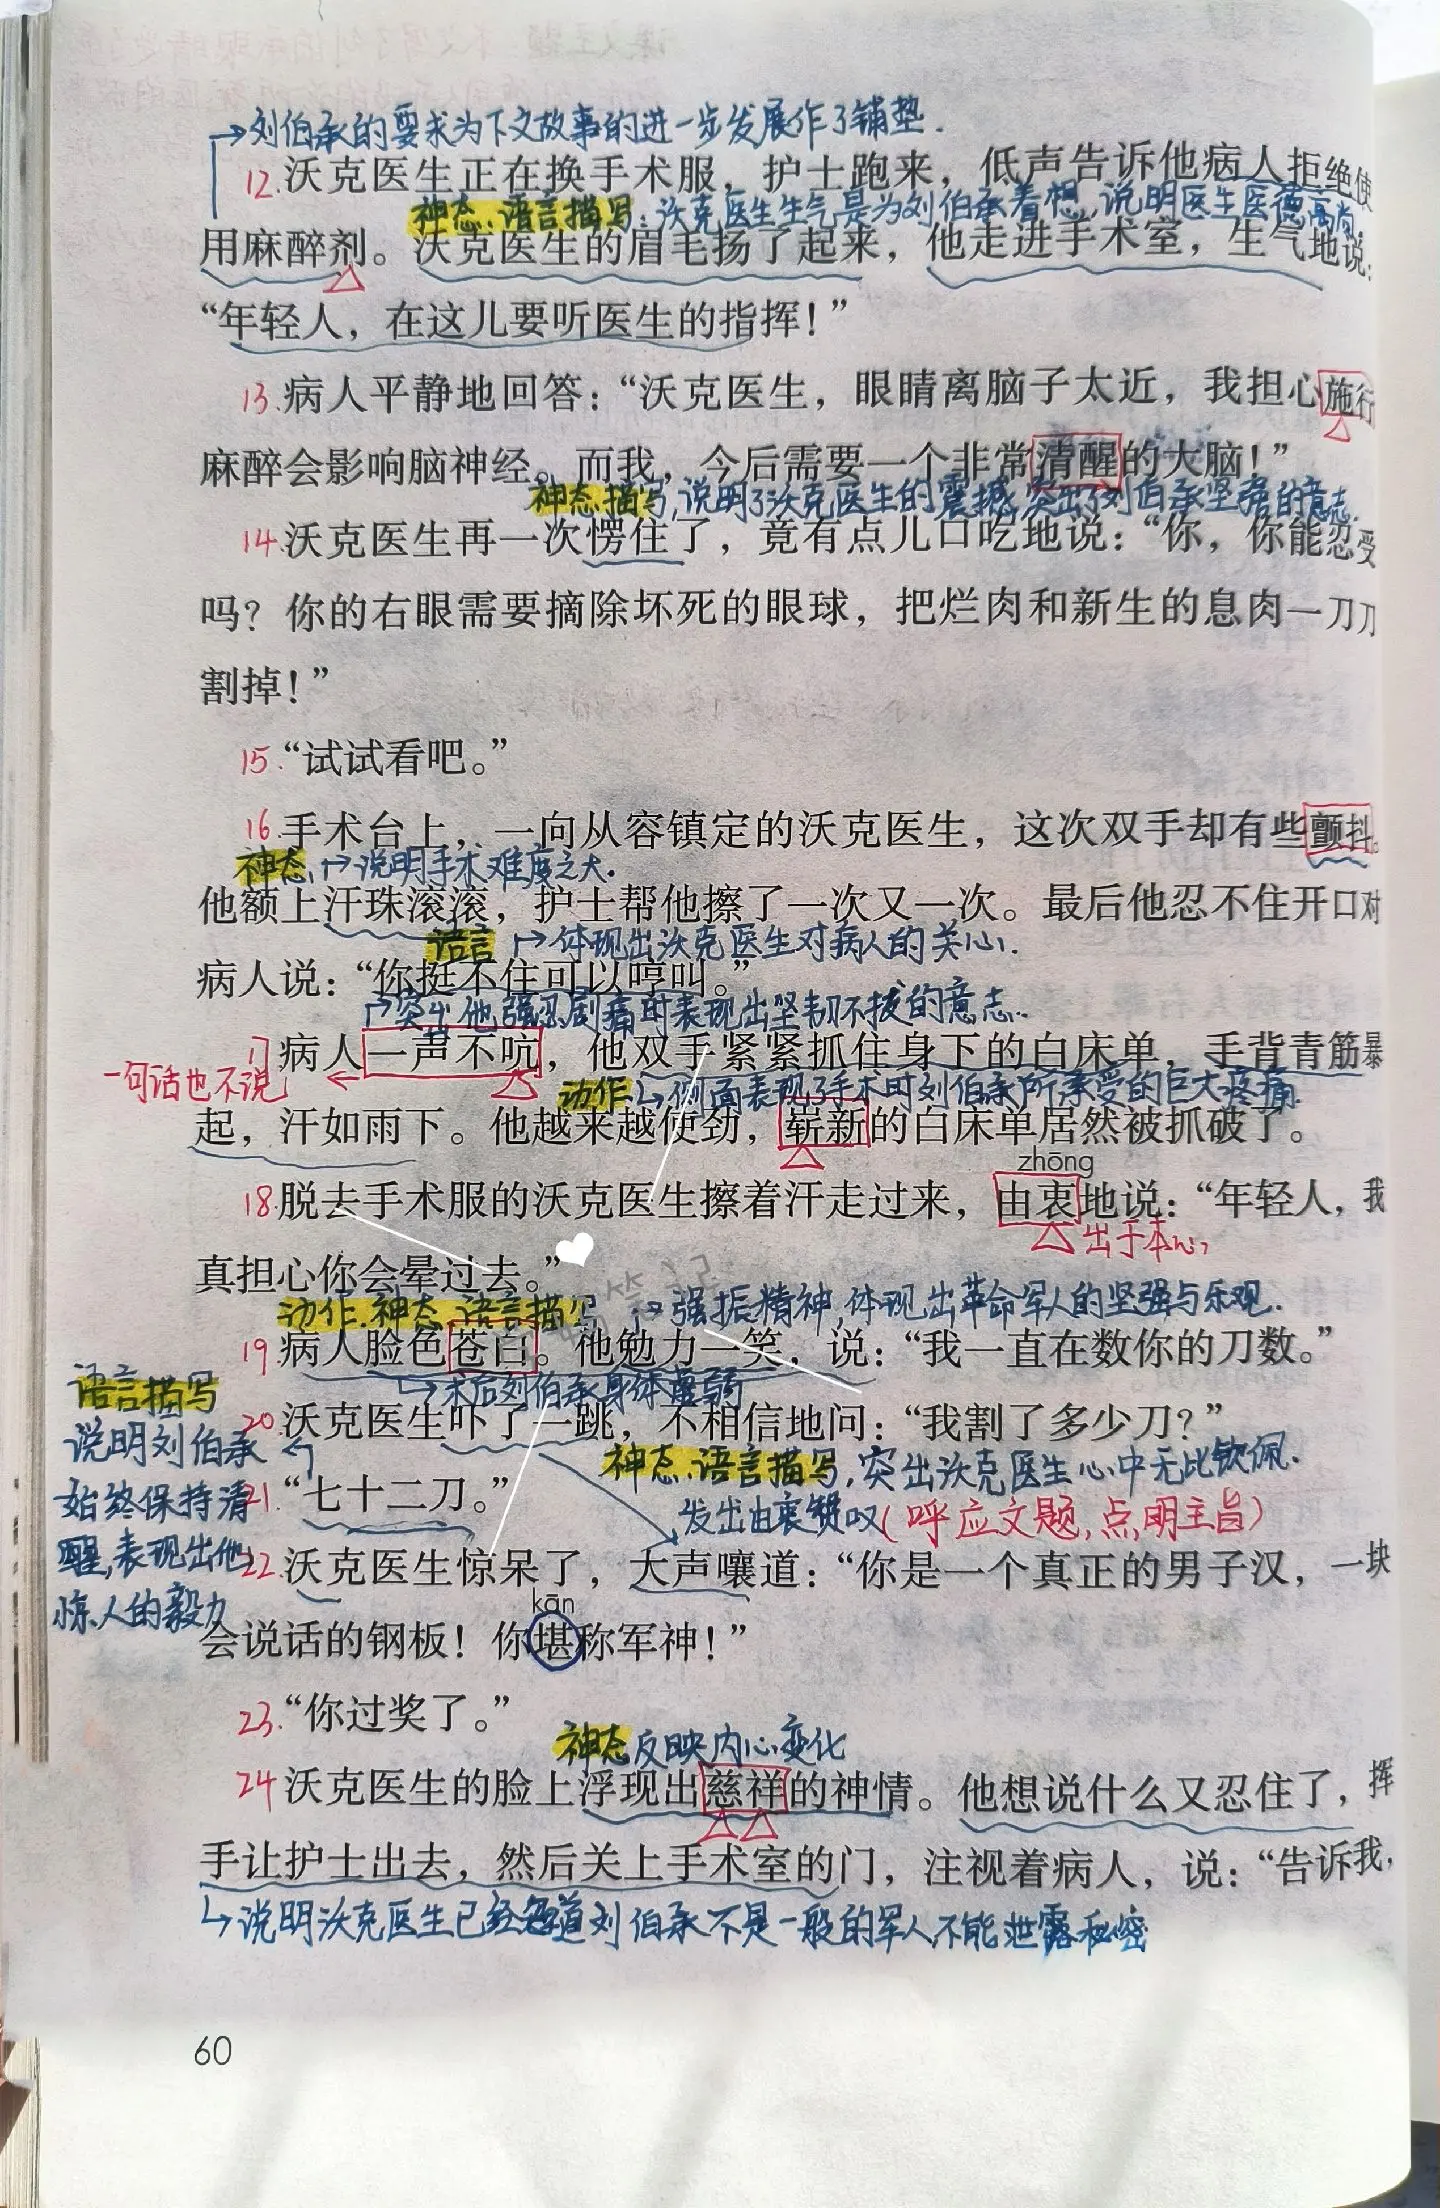 →刘伯承的要求为下文故事的进一步发展作了铺垫.
12.沃克医生正在换手术服，护士跑来，低声告诉他病人拒绝使
神态.语言描写：沃克医生生气是为刘伯承着想,说明医生医德高尚.
用麻醉剂。沃克医生的眉毛扬了起来，他走进手术室，生气地说：
“年轻人，在这儿要听医生的指挥！”
13.病人平静地回答：“沃克医生，眼睛离脑子太近，我担心施行
麻醉会影响脑神经。而我，今后需要一个非常清醒的大脑！”
神态.描写,说明了沃克医生的震撼,突出了刘伯承坚强的意志.
14.沃克医生再一次愣住了，竟有点儿口吃地说：“你，你能忍受
吗？你的右眼需要摘除坏死的眼球，把烂肉和新生的息肉一刀刀
割掉！”
15.“试试看吧。”
16.手术台上，一向从容镇定的沃克医生，这次双手却有些颤抖。
神态.→说明手术难度之大.
他额上汗珠滚滚，护士帮他擦了一次又一次。最后他忍不住开口对
语言→体现出沃克医生对病人的关心.
病人说：“你挺不住可以哼叫。”
→突出他强忍剧痛时表现出坚韧不拔的意志.
17病人一声不吭，他双手紧紧抓住身下的白床单，手背青筋暴
一句话也不说←
动作→侧面表现了手术时刘伯承所承受的巨大疼痛.
起，汗如雨下。他越来越使劲，崭新的白床单居然被抓破了。
zhōng
18.脱去手术服的沃克医生擦着汗走过来，由衷地说：“年轻人，我
出于本心
真担心你会晕过去。”
动作.神态.语言描写→强振精神,体现出革命军人的坚强与乐观.
19.病人脸色苍白。他勉力一笑，说：“我一直在数你的刀数。”
→术后刘伯承身体虚弱
20.沃克医生吓了一跳，不相信地问：“我割了多少刀？”
语言描写
说明刘伯承
始终保持清
醒,表现出他
惊人的毅力
神态.语言描写,突出沃克医生心中无比钦佩.
发出由衷赞叹(呼应文题,点明主旨)
21.“七十二刀。”
22.沃克医生惊呆了，大声嚷道：“你是一个真正的男子汉，一块
kān
会说话的钢板！你堪称军神！”
23.“你过奖了。”
神态反映内心变化
24沃克医生的脸上浮现出慈祥的神情。他想说什么又忍住了，挥
手让护士出去，然后关上手术室的门，注视着病人，说：“告诉我，
→说明沃克医生已经知道刘伯承不是一般的军人,不能泄露秘密
60